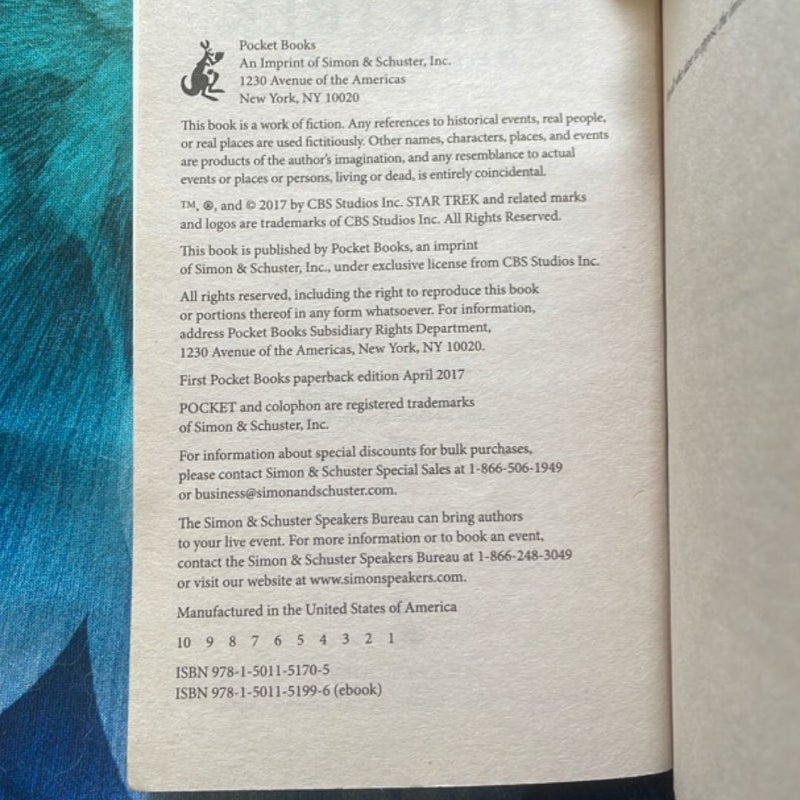 Pocket Books
An Imprint of Simon & Schuster, Inc.
1230 Avenue of the Americas
New York, NY 10020
This book is a work of fiction. Any references to historical events, real people,
or real places are used fictitiously. Other names, characters, places, and events
are products of the author's imagination, and any resemblance to actual
events or places or persons, living or dead, is entirely coincidental.
™, ®, and © 2017 by CBS Studios Inc. STAR TREK and related marks
and logos are trademarks of CBS Studios Inc. All Rights Reserved.
This book is published by Pocket Books, an imprint
of Simon & Schuster, Inc., under exclusive license from CBS Studios Inc.
All rights reserved, including the right to reproduce this book
or portions thereof in any form whatsoever. For information,
address Pocket Books Subsidiary Rights Department,
1230 Avenue of the Americas, New York, NY 10020.
First Pocket Books paperback edition April 2017
POCKET and colophon are registered trademarks
of Simon & Schuster, Inc.
For information about special discounts for bulk purchases,
please contact Simon & Schuster Special Sales at 1-866-506-1949
or business@simonandschuster.com.
The Simon & Schuster Speakers Bureau can bring authors
to your live event. For more information or to book an event,
contact the Simon & Schuster Speakers Bureau at 1-866-248-3049
or visit our website at www.simonspeakers.com.
Manufactured in the United States of America
10 9 8 7 6 5 4 3 2 1
ISBN 978-1-5011-5170-5
ISBN 978-1-5011-5199-6 (ebook)